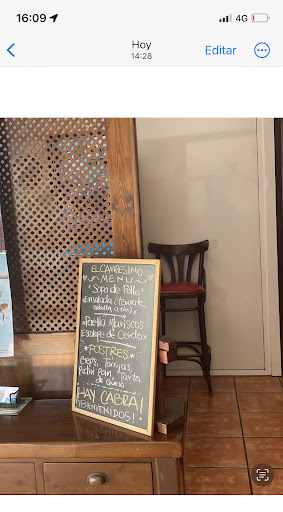 16:09
4G
Hoy
14:28
Editar
EL CAMPESINO
MENU
Sopa de Pollo
Ensalada (tomate,
cebolla, atún)
Paella Mariscos
Escalope de Cerdo
POSTRES
Torrijas,
Pan, Tarta
de queso
HAY CABRA!
¡BIENVENIDOS!